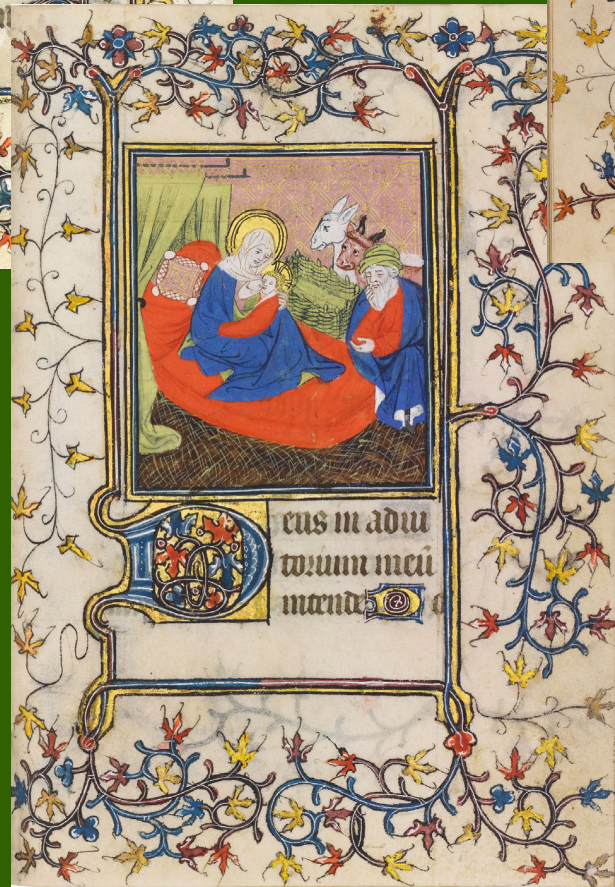 Deus in adiu
torium meū
intende D